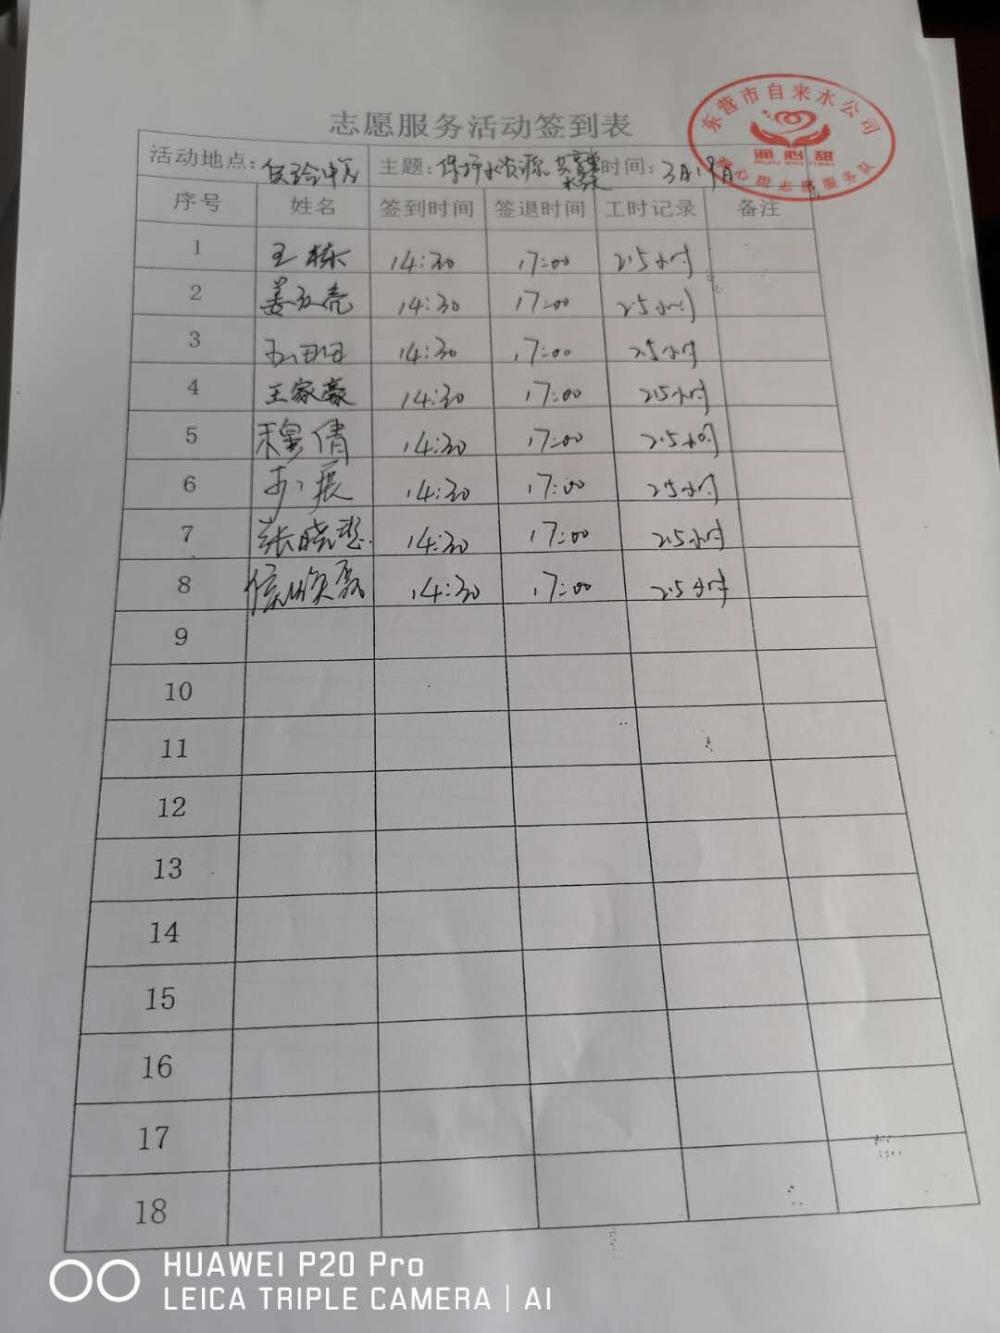 志愿服务活动签到表
东营市自来水公司
润心甜
润心甜志愿服务队
活动地点: 实验中学 主题: 保护水资源 时间: 3月19日
序号 姓名 签到时间 签退时间 工时记录 备注
1 王栋 14:30 17:00 2.5小时
2 姜 亮 14:30 17:00 2.5小时
3 14:30 17:00 2.5小时
4 王家豪 14:30 17:00 2.5小时
5 穆倩 14:30 17:00 2.5小时
6 14:30 17:00 2.5小时
7 张晓 14:30 17:00 2.5小时
8 14:30 17:00 2.5小时
9
10
11
12
13
14
15
16
17
18
HUAWEI P20 Pro
LEICA TRIPLE CAMERA | AI